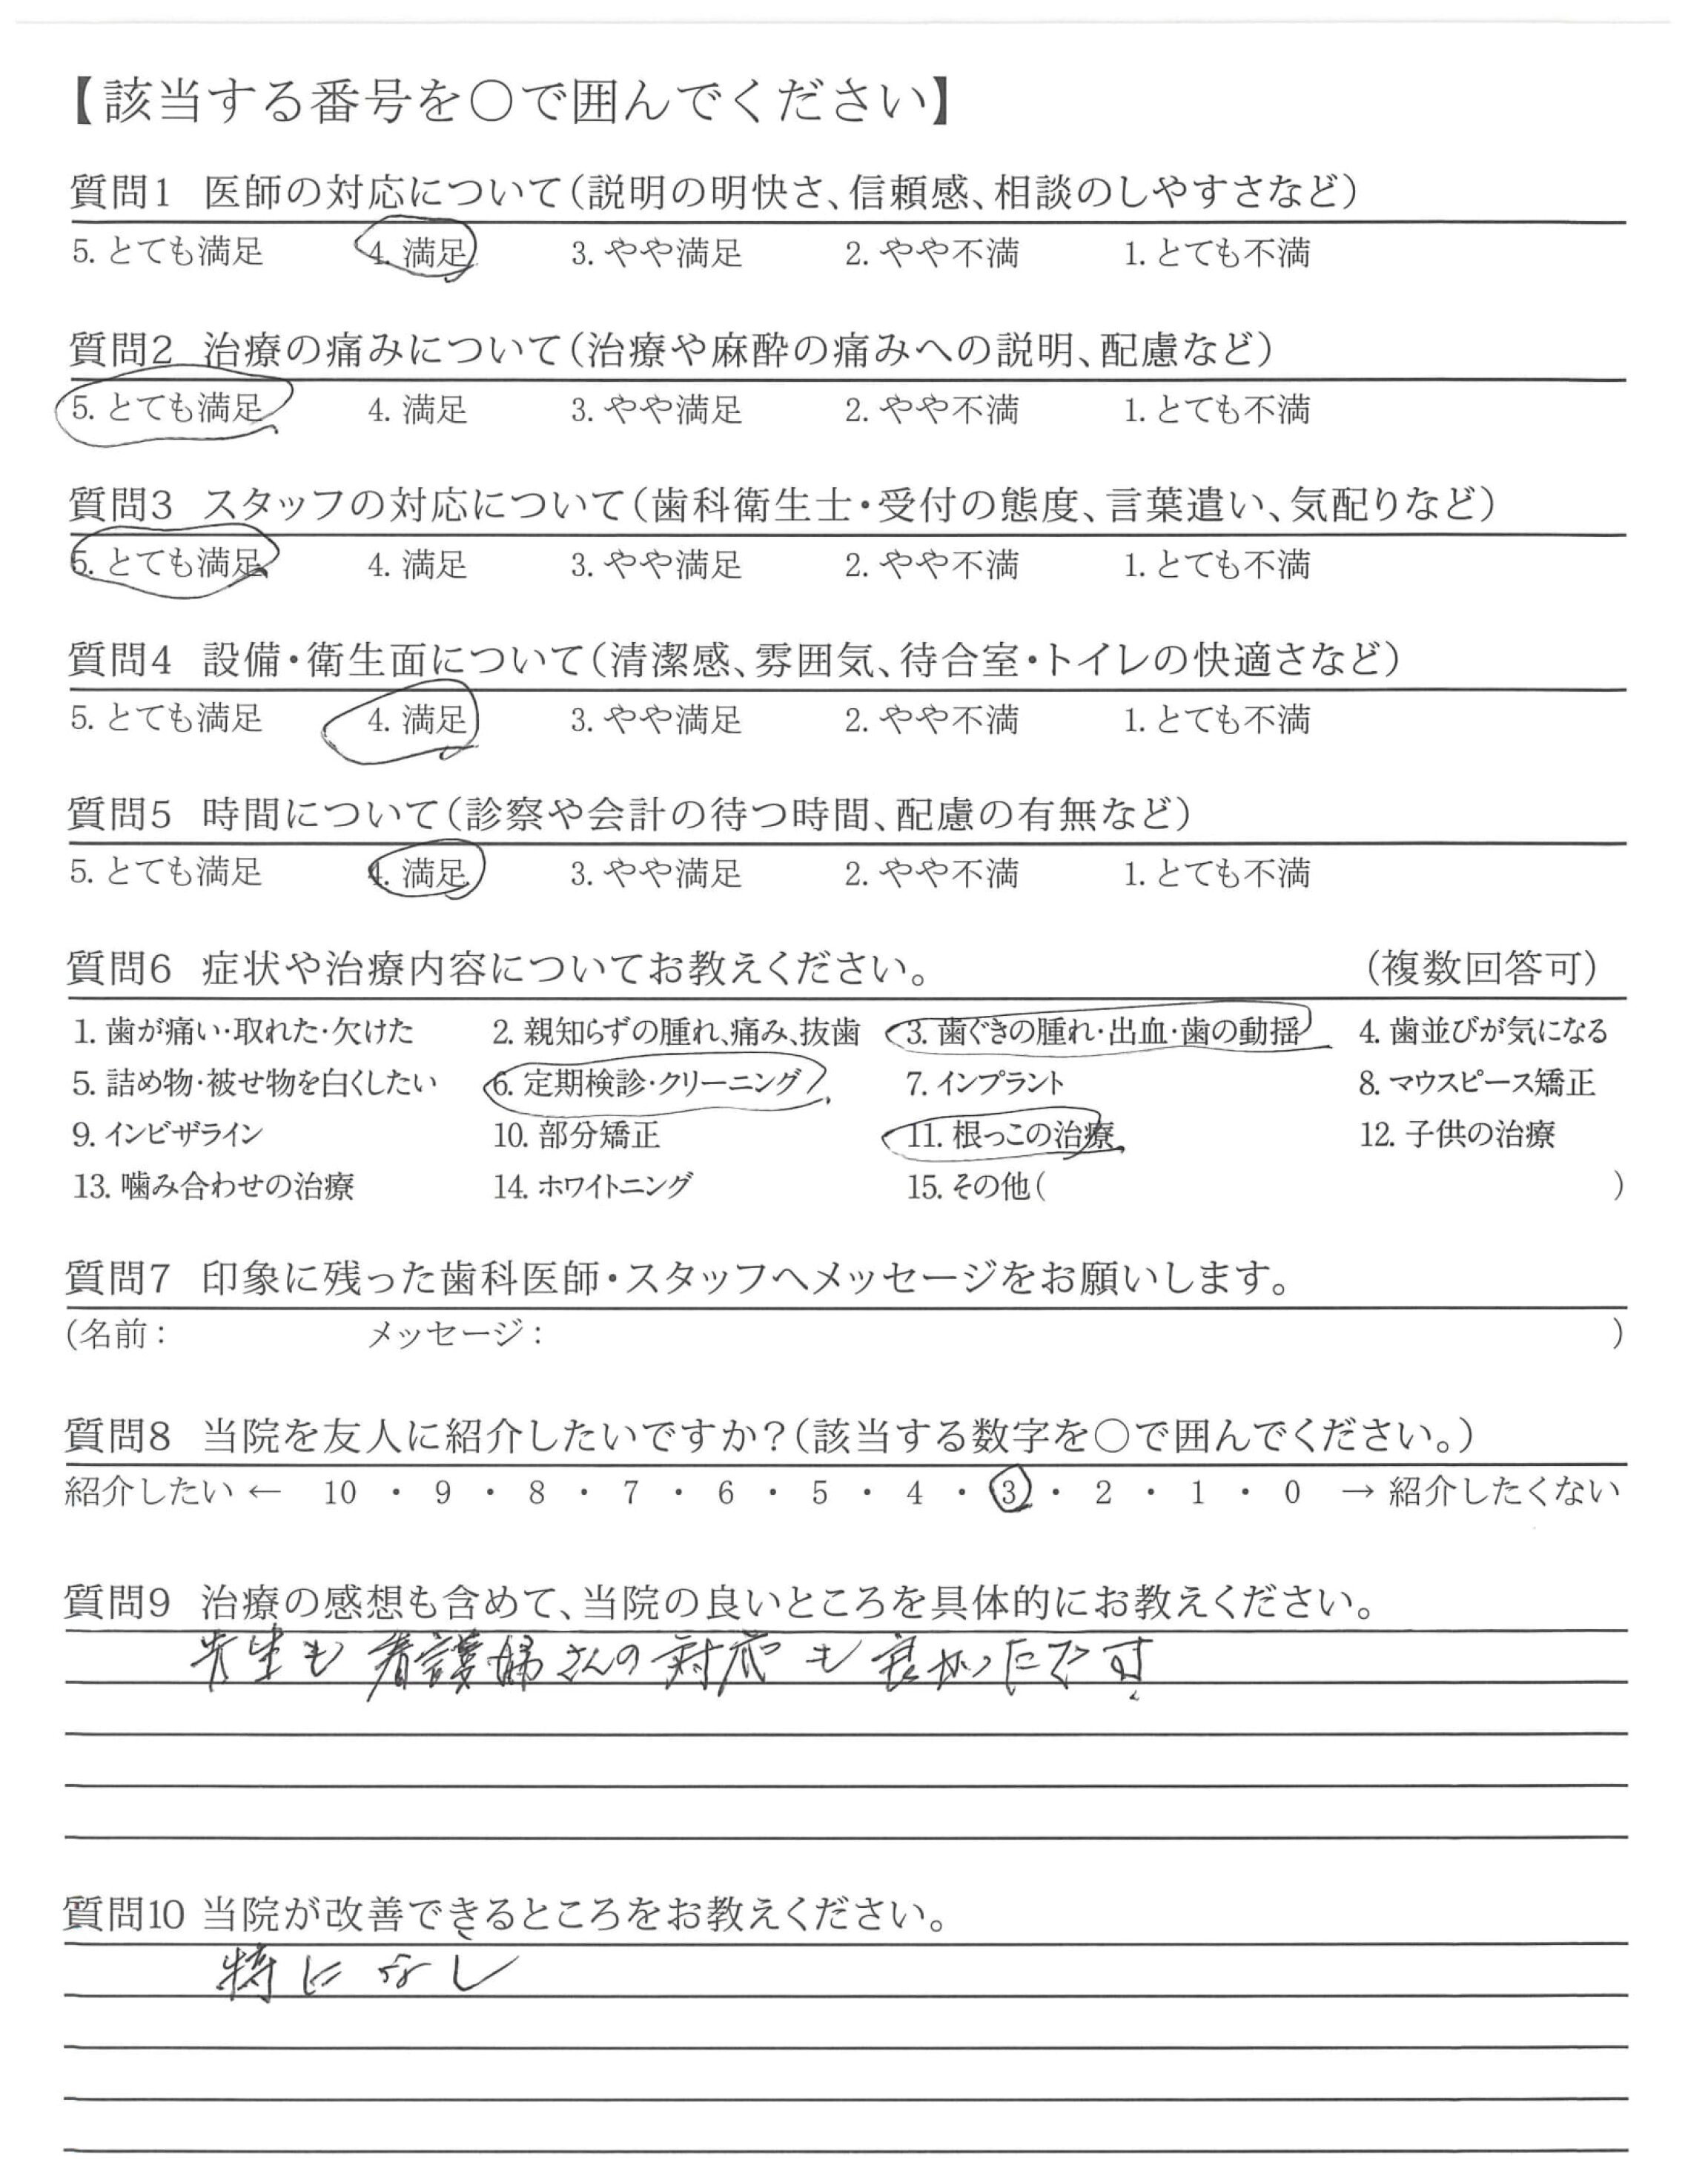 【該当する番号を○で囲んでください】
質問1 医師の対応について(説明の明快さ、信頼感、相談のしやすさなど)
5. とても満足 4. 満足 3. やや満足 2. やや不満 1. とても不満
質問2 治療の痛みについて(治療や麻酔の痛みへの説明、配慮など)
5. とても満足 4. 満足 3. やや満足 2. やや不満 1. とても不満
質問3 スタッフの対応について(歯科衛生士・受付の態度、言葉遣い、気配りなど)
5. とても満足 4. 満足 3. やや満足 2. やや不満 1. とても不満
質問4 設備・衛生面について(清潔感、雰囲気、待合室・トイレの快適さなど)
5. とても満足 4. 満足 3. やや満足 2. やや不満 1. とても不満
質問5 時間について(診察や会計の待つ時間、配慮の有無など)
5. とても満足 4. 満足 3. やや満足 2. やや不満 1. とても不満
質問6 症状や治療内容についてお教えください。 (複数回答可)
1. 歯が痛い・取れた・欠けた 2. 親知らずの腫れ、痛み、抜歯 3. 歯ぐきの腫れ・出血・歯の動揺 4. 歯並びが気になる
5. 詰め物・被せ物を白くしたい 6. 定期検診・クリーニング 7. インプラント 8. マウスピース矯正
9. インビザライン 10. 部分矯正 11. 根っこの治療 12. 子供の治療
13. 噛み合わせの治療 14. ホワイトニング 15. その他( )
質問7 印象に残った歯科医師・スタッフへメッセージをお願いします。
(名前: メッセージ: )
質問8 当院を友人に紹介したいですか?(該当する数字を○で囲んでください。)
紹介したい ← 10 ・ 9 ・ 8 ・ 7 ・ 6 ・ 5 ・ 4 ・ 3 ・ 2 ・ 1 ・ 0 → 紹介したくない
質問9 治療の感想も含めて、当院の良いところを具体的にお教えください。
先生も看護婦さんの対応も良かったです
質問10 当院が改善できるところをお教えください。
特になし